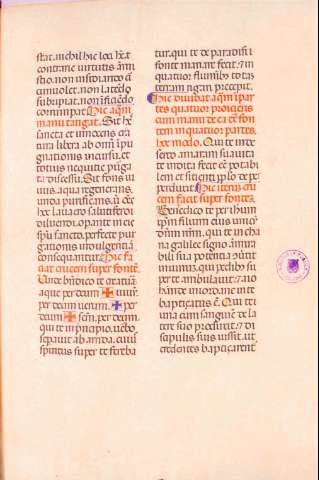 stat. nichil hic loci hēt
contrarie virtutis āmi
stio. non insidiando cī
cumvolet. non latēdo
subripiat. non īficiēdo
corrumpat. Hic aqm̄
manu tangat. Sit hec
sancta et innocens crea
tura libera ab omī īpu
gnationis incursu. et
totius nequitie purga
ta discessu. Sit fons vi
vus. aqua regenerans.
unda purificans. ut oēs
hoc lavacro salutifero
diluendi. operante in eis
spū sancto. perfecte pur
gationis indulgentiā
consequantur. Hic fa
ciat crucem super fontē.
Unde bn̄dico te creatura
aque per deum ✠ vivū.
per deum verum. ✠ per
deum ✠ scm̄. per deum.
qui te in principio. verbo
separavit ab arida. cuius
spiritus super te fereba
tur. qui te de paradisi
fonte manare fecit. et in
quatuor fluminibus totas
terram rigare precepit.
Hic dividat aqm̄ ī par
tes quatuor proiciens
cum manu de ea extra fon
tem in quatuor partes.
hoc modo. Qui te in de
serto amaram suavita
te indita fecit eē potabi
lem et sitienti pplo de pe
tra produxit. Hic iterum cru
cem facit super fontez.
Benedico te per ihum
xpm filium eius unicū
dnm nrm. qui te in cha
na galilee signo ammira
bili sua potentia convertit
in vinum. qui pedibus su
per te ambulavit. et a io
hanne in iordane in te
baptiçatus ē. Qui te
una cum sanguine de la
tere suo produxit. et di
scipulis suis iussit. ut
credentes baptiçarent